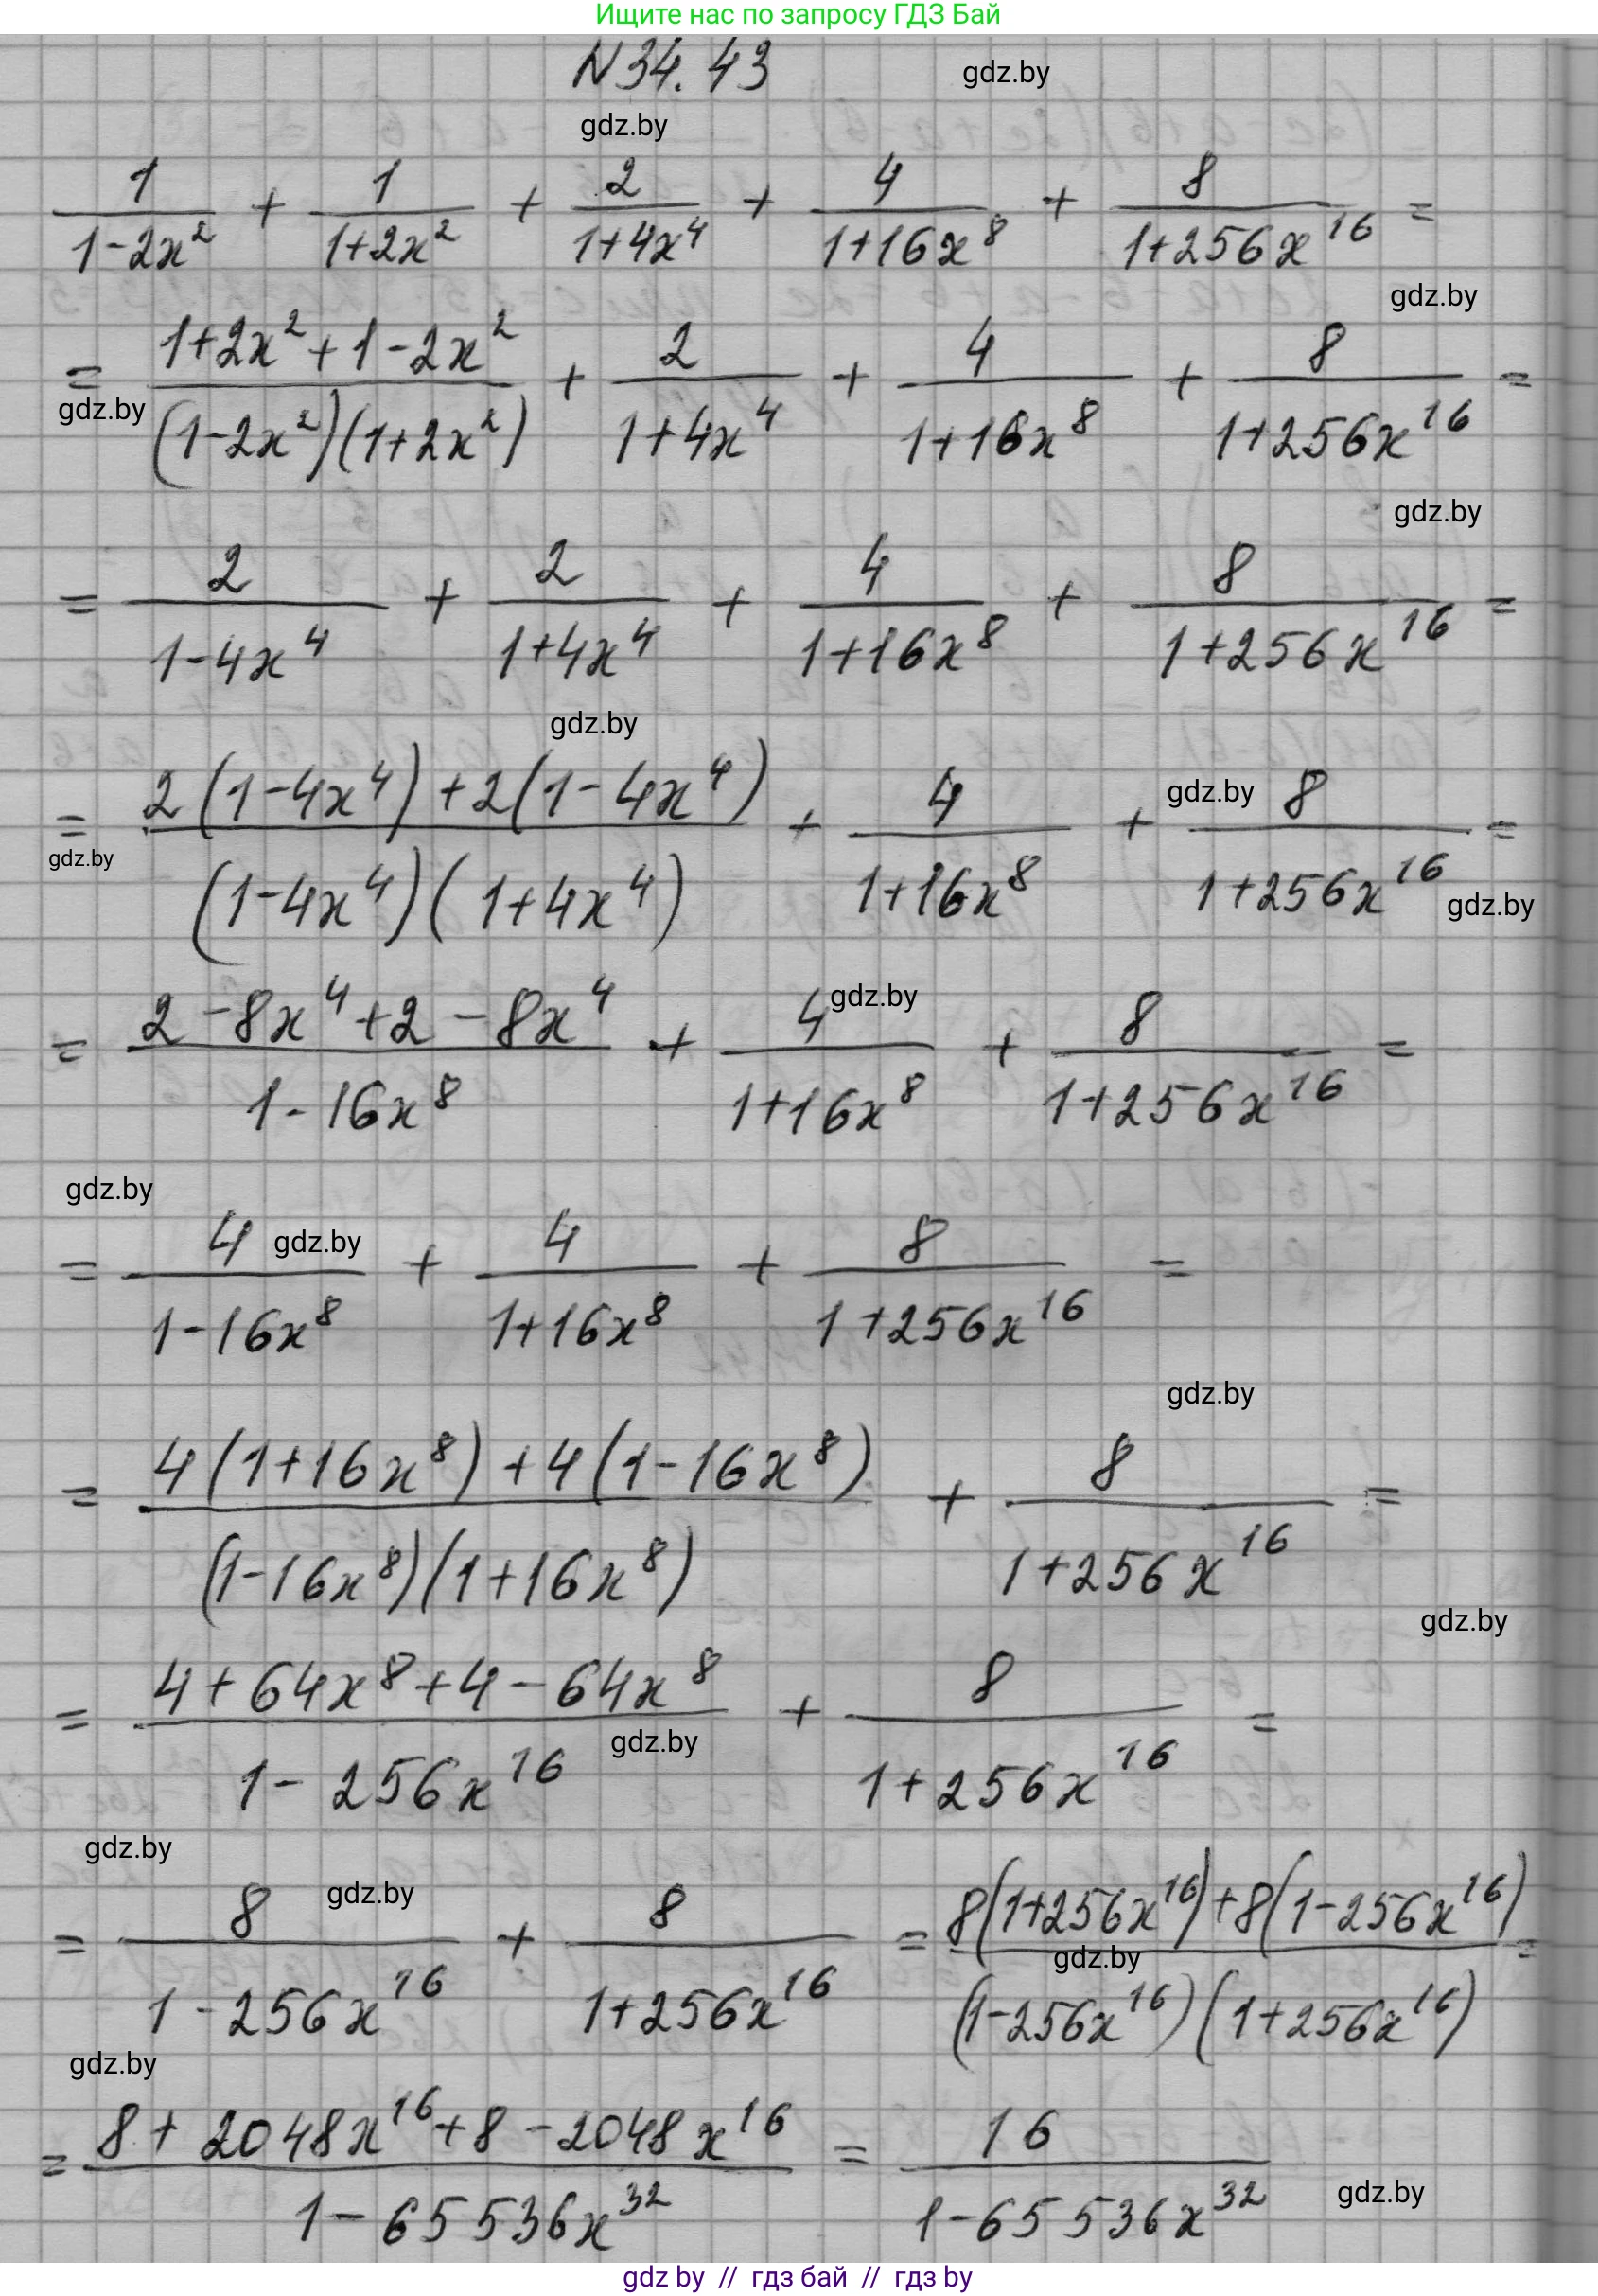 Ищите нас по запросу ГДЗ Бай
N34.43
gdz.by
gdz.by
1/(1-2x²) + 1/(1+2x²) + 2/(1+4x⁴) + 4/(1+16x⁸) + 8/(1+256x¹⁶) =
gdz.by
= (1+2x²+1-2x²)/((1-2x²)(1+2x²)) + 2/(1+4x⁴) + 4/(1+16x⁸) + 8/(1+256x¹⁶) =
gdz.by
gdz.by
= 2/(1-4x⁴) + 2/(1+4x⁴) + 4/(1+16x⁸) + 8/(1+256x¹⁶) =
gdz.by
gdz.by
= (2(1-4x⁴)+2(1-4x⁴))/((1-4x⁴)(1+4x⁴)) + 4/(1+16x⁸) + 8/(1+256x¹⁶) =
gdz.by
gdz.by
gdz.by
= (2-8x⁴+2-8x⁴)/(1-16x⁸) + 4/(1+16x⁸) + 8/(1+256x¹⁶) =
gdz.by
gdz.by
= 4/(1-16x⁸) + 4/(1+16x⁸) + 8/(1+256x¹⁶) =
gdz.by
= (4(1+16x⁸)+4(1-16x⁸))/((1-16x⁸)(1+16x⁸)) + 8/(1+256x¹⁶) =
gdz.by
= (4+64x⁸+4-64x⁸)/(1-256x¹⁶) + 8/(1+256x¹⁶) =
gdz.by
gdz.by
gdz.by
= 8/(1-256x¹⁶) + 8/(1+256x¹⁶) = (8(1+256x¹⁶)+8(1-256x¹⁶))/((1-256x¹⁶)(1+256x¹⁶)) =
gdz.by
gdz.by
= (8+2048x¹⁶+8-2048x¹⁶)/(1-65536x³²) = 16/(1-65536x³²)
gdz.by
gdz by // гдз бай // гдз by